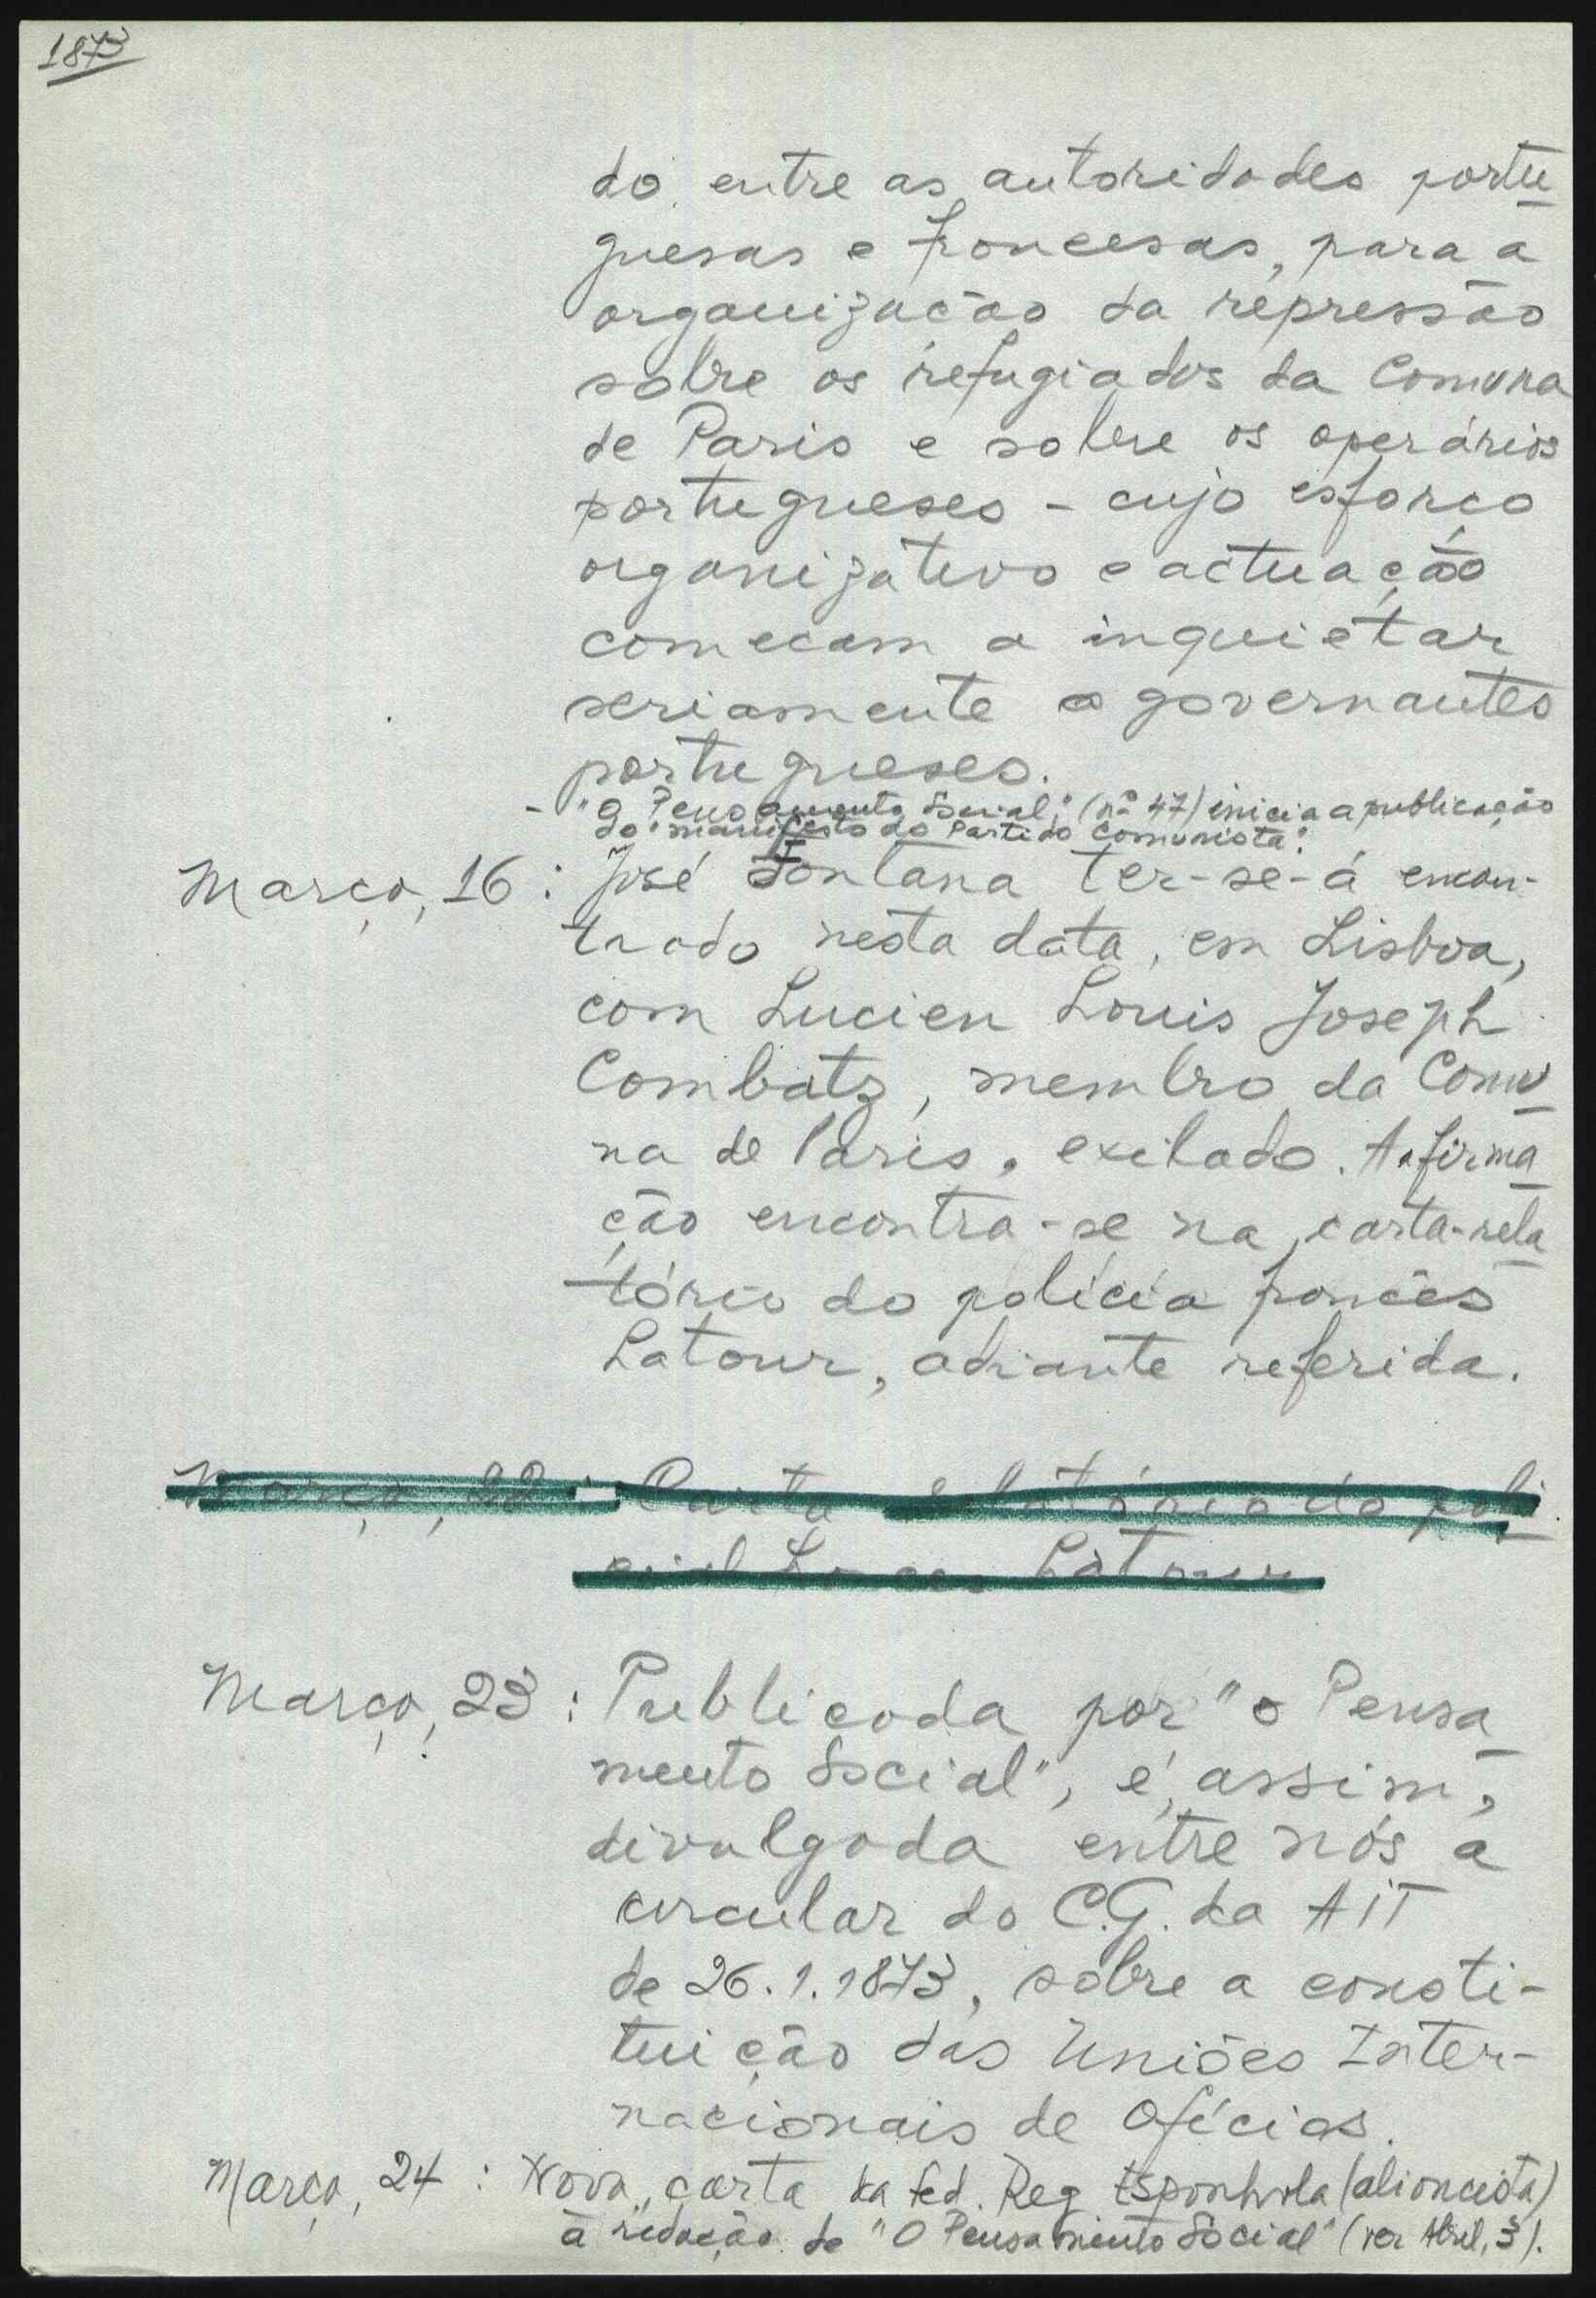 1873
do entre as autoridades portu
guesas e francesas, para a
organização da repressão
sobre os refugiados da Comuna
de Paris e sobre os operários
portugueses - cujo esforço
organizativo e actuação
começam a inquietar
seriamente os governantes
portugueses.
- "O Pensamento Social", (nº 47) inicia a publicação
do "manifesto do Partido Comunista".
Março, 16 : José Fontana ter-se-á encon-
trado nesta data, em Lisboa,
com Lucien Louis Joseph
Combatz, membro da Comu
na de Paris, exilado. A afirma
ção encontra-se na carta-rela
tório do polícia francês
Latour, adiante referida.
Março, 22 : Carta relatório do poli
cial Latour
Março, 23 : Publicada por "O Pensa
mento Social", é, assim,
divulgada entre nós a
circular do C.G. da AIT
de 26.1.1873, sobre a consti-
tuição das Uniões Inter-
nacionais de Ofícios.
Março, 24 : Nova carta da Fed. Reg Espanhola (aliancista)
à redacção de "O Pensamento Social" (ver Abril, 3).